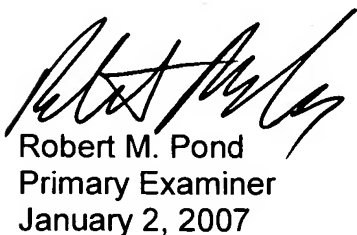 Robert M. Pond
Primary Examiner
January 2, 2007